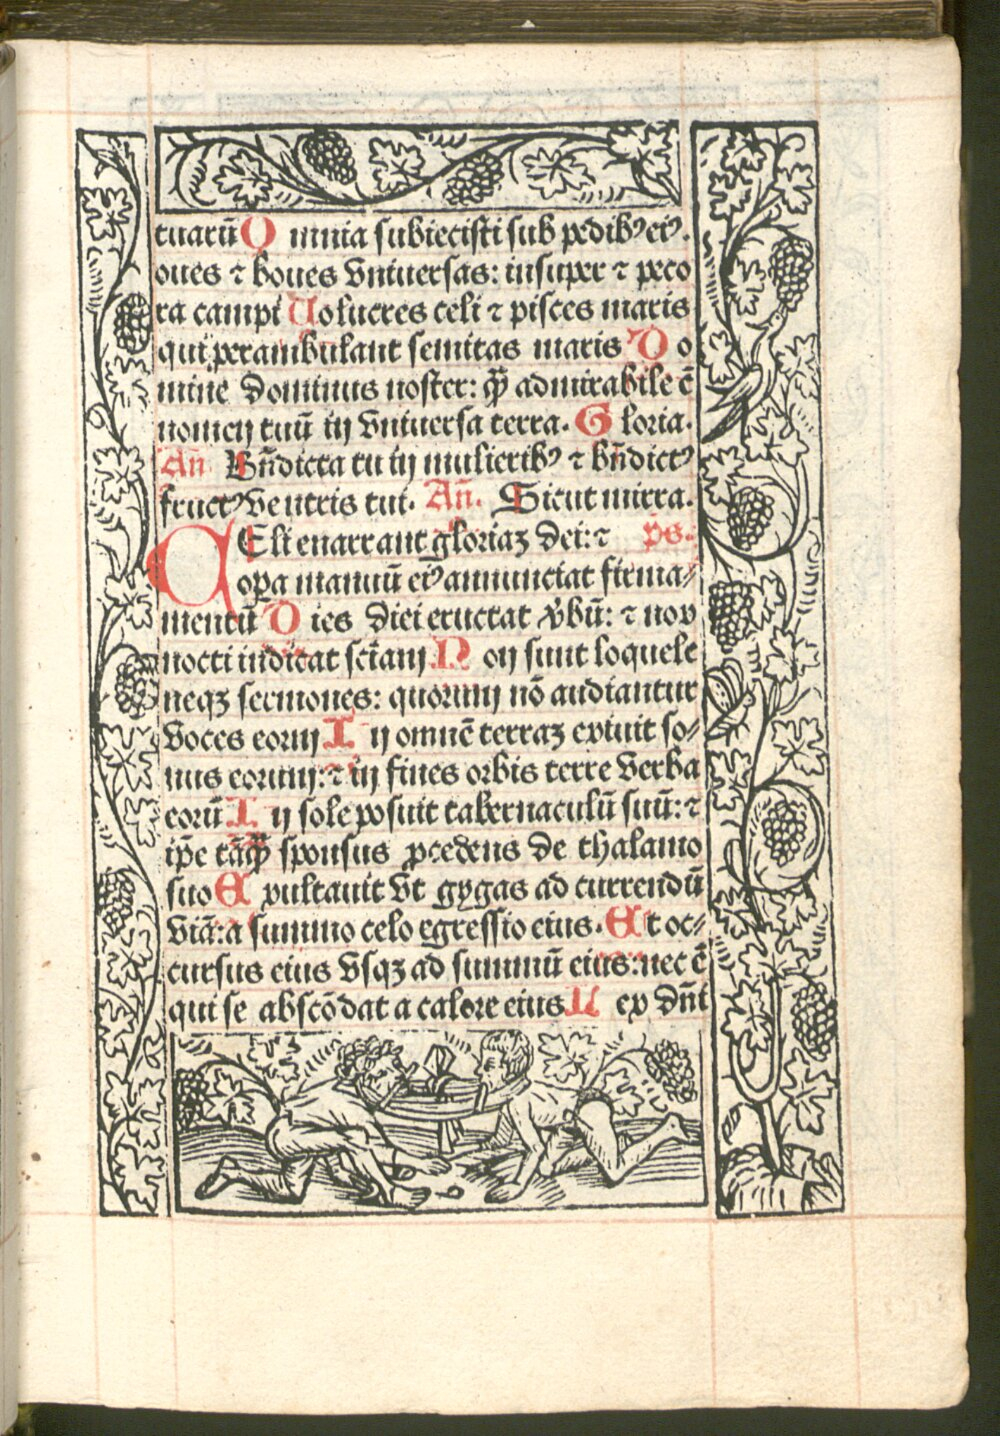 tuarū O mnia subiecisti sub pedibꝰ eiꝰ.
oues ⁊ boues vniuersas: insuper ⁊ peco
ra campi Uolucres celi ⁊ pisces maris
qui perambulant semitas maris D o
mine dominus noster: q̄ꝫ admirabile ē
nomen tuū in vniuersa terra. G loria.
Añ Bñdicta tu in mulieribꝰ ⁊ bñdictꝰ
fructꝰ ventris tui. Añ. Sicut mirra.
CEli enarrant gloriaꝫ dei: ⁊ p̄s.
opa manuū eiꝰ annunciat firma⸗
mentū D ies diei eructat v̓bū: ⁊ nox
nocti indicat sc̄iam N on sunt loquele
neqꝫ sermones: quorum nō audiantur
voces eorum I n omnē terraꝫ exiuit so⸗
nus eorum: ⁊ in fines orbis terre verba
eorū I n sole posuit tabernaculū suū: ⁊
ip̄e tāq̄ꝫ sponsus ꝓcedens de thalamo
suo E xultauit vt gygas ad currendū
viā: a summo celo egressio eius. Et oc⸗
cursus eius vsqꝫ ad summū eius: nec ē
qui se abscōdat a calore eius L ex dñi